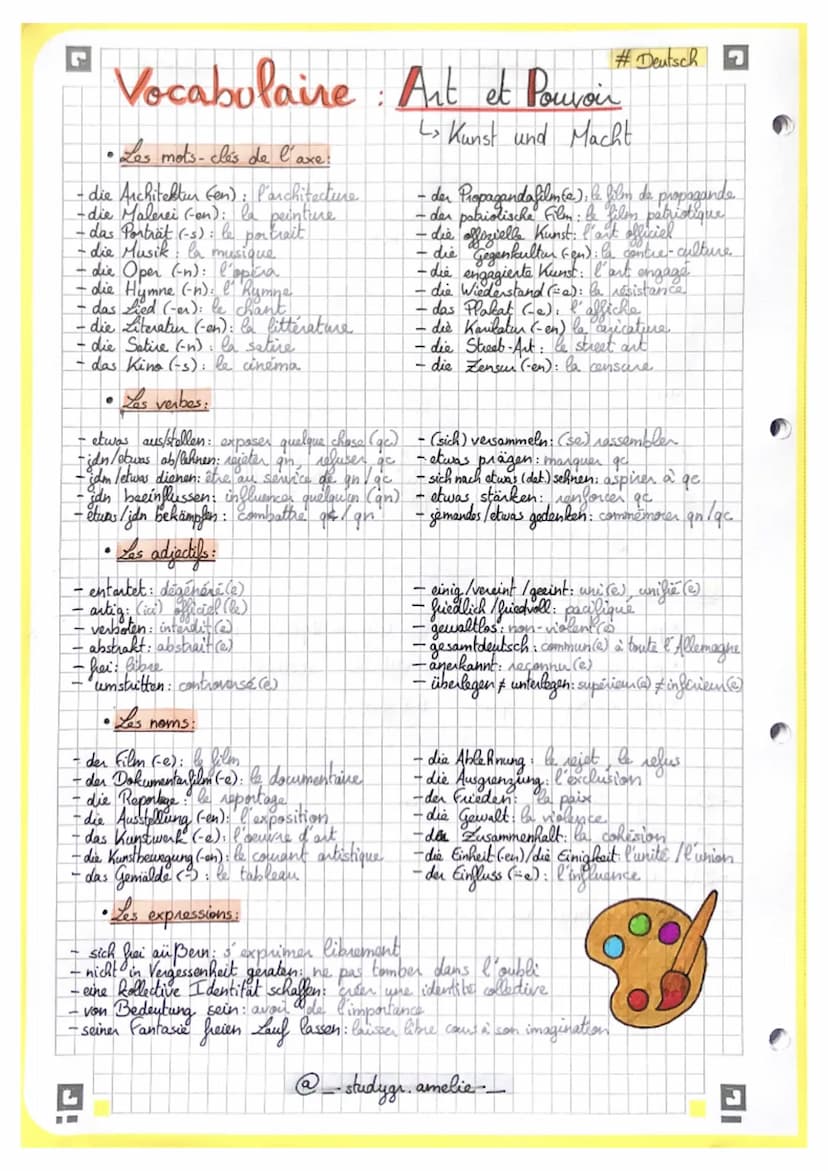 # Deutsch
Vocabulaire : Art et Pouvoir
↳ Kunst und Macht
• Les mots-clés de l'axe:
- die Architektur (-en) : l'architecture
- die Malerei (-en): la peinture
- das Porträt (-s) : le portrait
- die Musik : la musique
- die Oper (-n): l'opéra
- die Hymne (-n): l'Hymne
- das Lied (-er): le chant
- die Literatur (-en): la littérature
- die Satire (-n) : la satire
- das Kino (-s) : le cinéma
- der Propagandafilm(e): le film de propagande
- der patriotische Film : le film patriotique
- die offizielle Kunst: l'art officiel
- die Gegenkultur (-en): la contre-culture
- die engagierte Kunst: l'art engagé
- die Wiederstand (=e): la résistance
- das Plakat (-e): l'affiche
- die Karikatur (-en) la caricature
- die Street-Art : le street art
- die Zensur (-en): la censure
• Les verbes:
- etwas aus/stellen: exposer quelque chose (qc)
- jdn/etwas ab/lehnen: rejeter qn, refuser qc
- jdm/etwas dienen: être au service de qn/qc
- jdn beeinflussen: influencer quelqu'un (qn)
- etwas/jdn bekämpfen : combattre qc/qn
- (sich) versammeln: (se) rassembler
- etwas prägen: marquer qc
- sich nach etwas (dat.) sehnen: aspirer à qc
- etwas stärken: renforcer qc
- jemandes/etwas gedenken: commémorer qn/qc
• Les adjectifs:
- entartet: dégénéré(e)
- artig: (ici) officiel(le)
- verboten: interdit(e)
- abstrakt: abstrait(e)
- frei: libre
- umstritten: controversé(e)
- einig/vereint/geeint: uni(e), unifié(e)
- friedlich/friedvoll: pacifique
- gewaltlos: non-violent(e)
- gesamtdeutsch: commun(e) à toute l'Allemagne
- anerkannt: reconnu(e)
- überlegen ≠ unterlegen: supérieur(e) ≠ inférieur(e)
• Les noms:
- der Film (-e): le film
- der Dokumentarfilm(-e): le documentaire
- die Reportage : le reportage
- die Ausstellung (-en): l'exposition
- das Kunstwerk (-e): l'oeuvre d'art
- die Kunstbewegung (-en): le courant artistique
- das Gemälde (-) : le tableau
- die Ablehnung : le rejet, le refus
- die Ausgrenzung: l'exclusion
- der Frieden: la paix
- die Gewalt: la violence
- der Zusammenhalt: la cohésion
- die Einheit (-en)/die Einigkeit: l'unité/l'union
- der Einfluss (=e): l'influence
• Les expressions:
- sich frei aüßern: s'exprimer librement
- nicht in Vergessenheit geraten: ne pas tomber dans l'oubli
- eine kollective Identität schaffen: créer une identité collective
- von Bedeutung sein: avoir de l'importance
- seiner Fantasie freien Lauf lassen: laisser libre cours à son imagination
@_-studygr.amelie-_